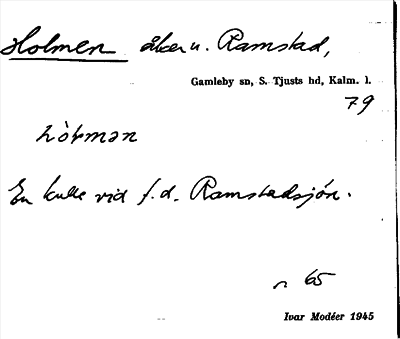 Holmen åker u. Ramstad,
Gamleby sn, S. Tjusts hd, Kalm. l.
79
En kulle vid f.d. Ramstadsjön.
65
Ivar Modéer 1945